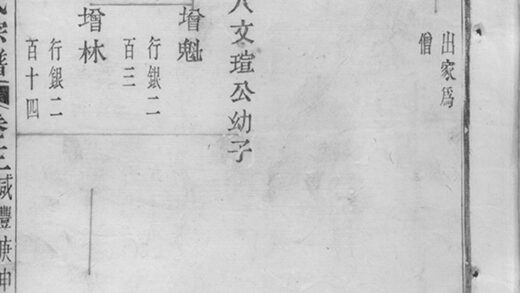 出家爲
僧
文瑄公幼子
增魁
行銀二
百三
增林
行銀二
百十四
宗譜 卷之三 咸豐庚申